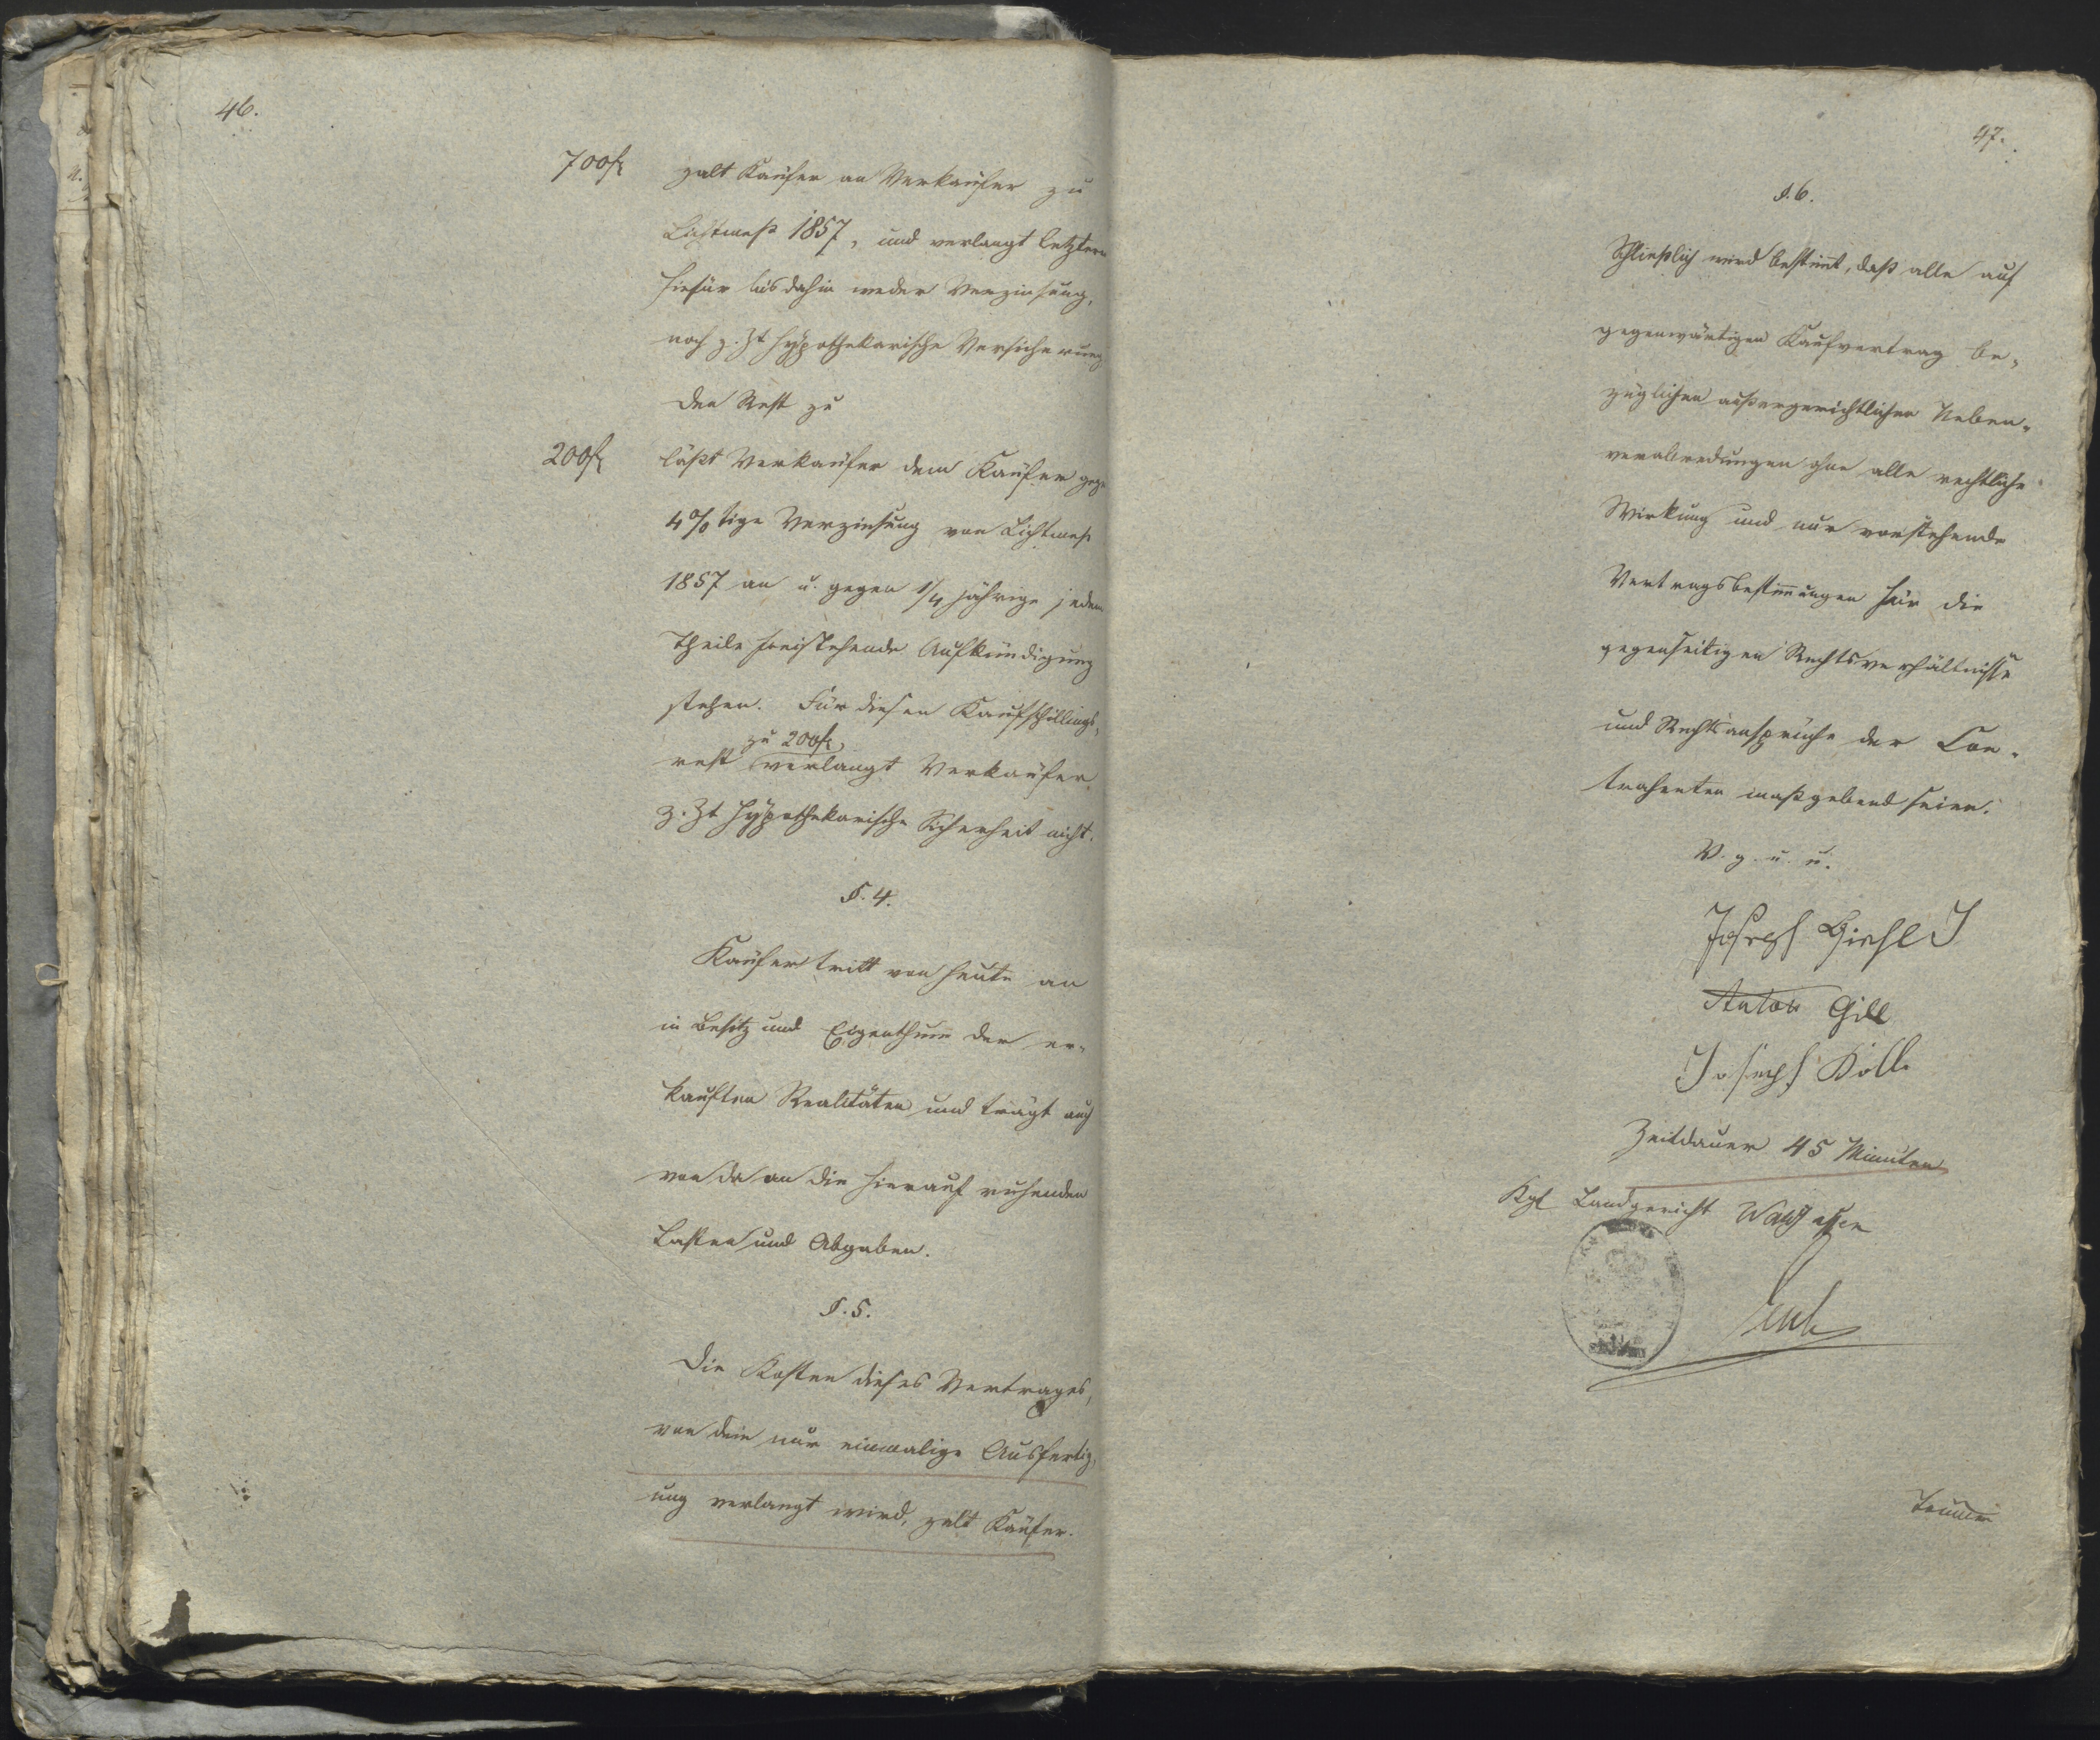 46.
700f zalt Käufer an Verkäufer zu
Lichtmeß 1857, und verlangt letzterer
hiefür bis dahin weder Verzinsung,
noch z. Zt hypothekarische Versicherung
den Rest zu
200f läßt Verkäufer dem Käufer gegen
4%tige Verzinsung von Lichtmeß
1857 an u. gegen 1/4 jährige jedem
Theile freistehende Aufkündigung
stehen. Für diesen Kaufschillings-
zu 200f
rest verlangt Verkäufer
z. Zt hypothekarische Sicherheit nicht.
§. 4.
Käufer tritt von heute an
in Besitz und Eigenthum der er-
kauften Realitäten und trägt auch
von da an die hierauf ruhenden
Lasten und Abgaben.
§. 5.
Die Kosten dieses Vertrages,
von dem nur einmalige Ausfertig-
ung verlangt wird, zalt Käufer.
47.
§. 6.
Schließlich wird bestimmt, daß alle auf
gegenwärtigen Kaufvertrag be-
züglichen außergerichtlichen Neben-
verabredungen ohne alle rechtliche
Wirkung und nur vorstehende
Vertragsbestimmungen für die
gegenseitigen Rechtsverhältnisse
und Rechtsansprüche der Con-
trahenten maßgebend seien.
V. g. u. u.
Joseph
Anton Gill
Joseph
Zeitdauer 45 Minuten
Kgl Landgericht Waldsassen